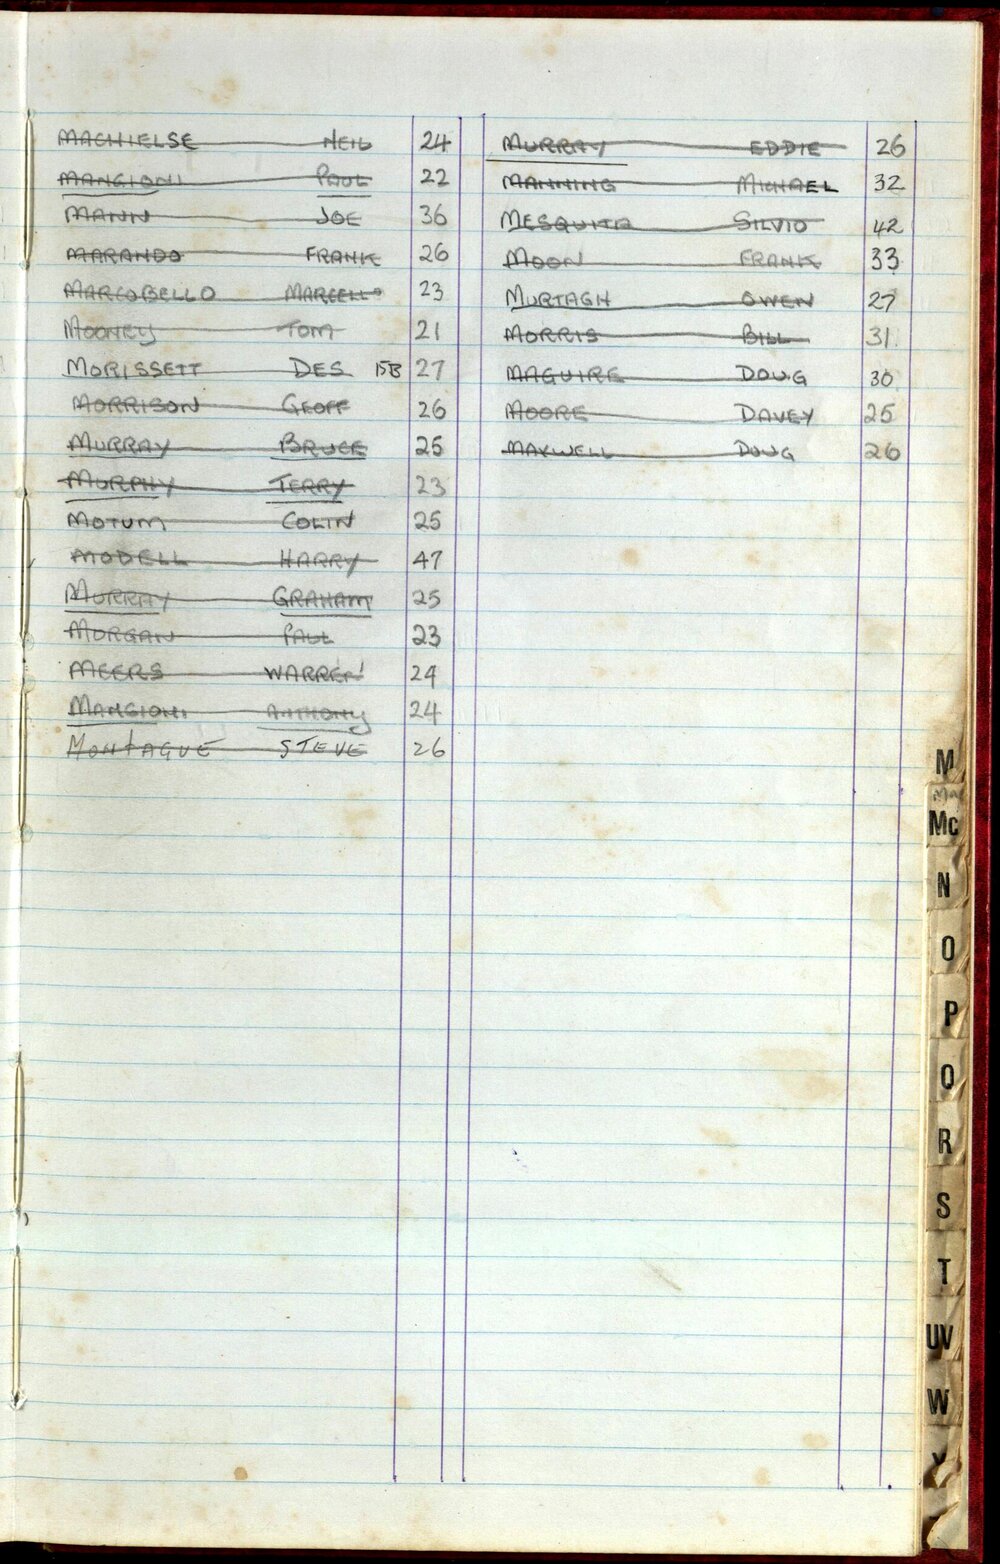 MACHIELSE NEIL 24
MANGIONI PAUL 22
MANN JOE 36
MARANDO FRANK 26
MARCOBELLO MARCELLO 23
MOONEY TOM 21
MORISSETT DES 15B 27
MORRISON GEOFF 26
MURRAY BRUCE 25
MURPHY TERRY 23
MOTUM COLIN 25
MODELL HARRY 47
MURRAY GRAHAM 25
MORGAN PAUL 23
MEERS WARREN 24
MANGIONI ANTHONY 24
MONTAGUE STEVE 26
MURRAY EDDIE 26
MANNING MICHAEL 32
MESQUITA SILVIO 42
MOON FRANK 33
MURTAGH OWEN 27
MORRIS BILL 31
MAGUIRE DOUG 30
MOORE DAVEY 25
MAXWELL DOUG 26
M
Mac
Mc
N
O
P
Q
R
S
T
UV
W
Y